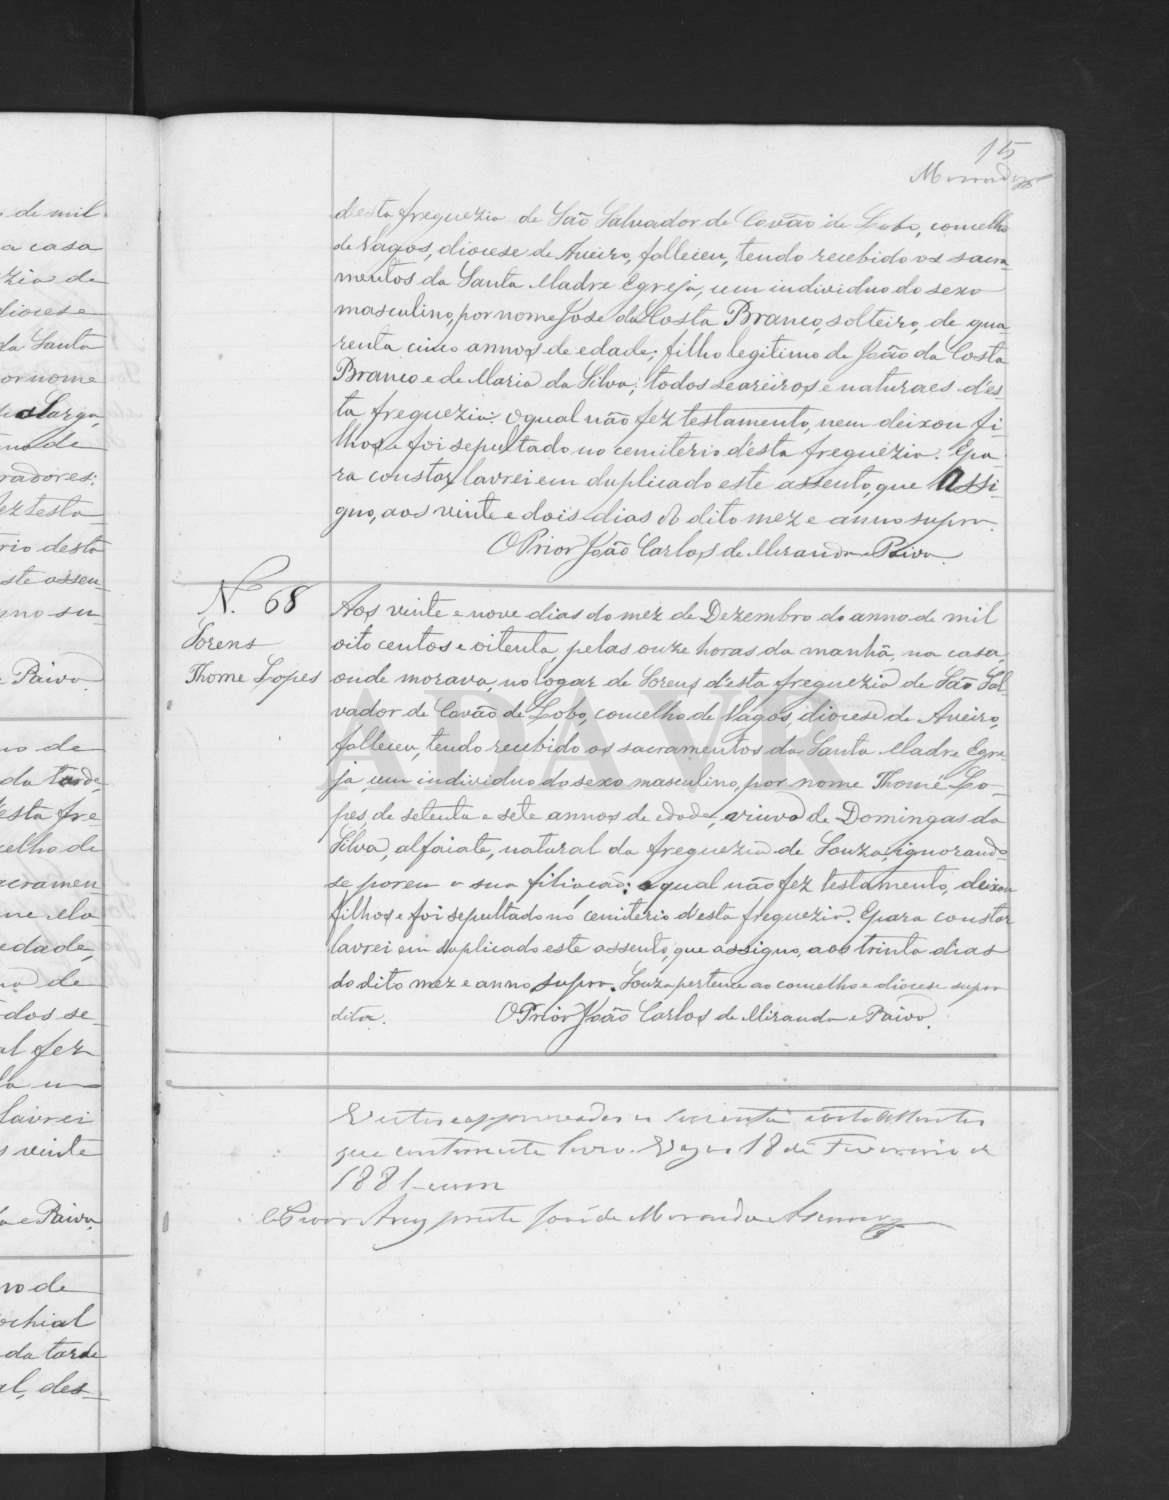 15
Miranda
desta freguezia de São Salvador de Covão de Lobo, concelho
de Vagos, diocese de Aveiro, falleceu, tendo recebido os sacra-
mentos da Santa Madre Egreja, um individuo do sexo
masculino, por nome José da Costa Branco, solteiro, de qua-
renta cinco annos de edade; filho legitimo de João da Costa
Branco e de Maria da Silva; todos seareiros e naturaes d'es-
ta freguezia: o qual não fez testamento, nem deixou fi-
lhos, e foi sepultado no cemiterio d'esta freguezia. E pa-
ra constar lavrei em duplicado este assento, que assi-
gno, aos vinte e dois dias do dito mez e anno supra.
O Prior João Carlos de Miranda e Paiva.
N.º 68
Sorens
Thome Lopes
Aos vinte e nove dias do mez de Dezembro do anno de mil
oito centos e oitenta, pelas onze horas da manhã, na casa,
onde morava, no logar de Sorens d'esta freguezia de São Sal-
vador de Covão de Lobo, concelho de Vagos, diocese de Aveiro,
falleceu, tendo recebido os sacramentos da Santa Madre Egre-
ja, um individuo do sexo masculino, por nome Thomé Lo-
pes, de setenta e sete annos de edade, viuvo de Domingas da
Silva, alfaiate, natural da freguezia de Souza, ignorando-
se porem a sua filiação: o qual não fez testamento, deixou
filhos e foi sepultado no cemiterio d'esta freguezia. E para constar
lavrei em duplicado este assento, que assigno, aos trinta dias
do dito mez e anno supra. Souza pertence ao concelho e diocese supra
dita. O Prior João Carlos de Miranda e Paiva.
Vistos e approvados os sessenta e oito assentos
que contem este livro. Vagos 18 de Fevereiro de
1881
O Prior Arcypreste José de Miranda
ADAVR
de mil
a casa
zia de
diocese
da Santa
or nome
radores:
ez testa-
rio desta
ste assen-
nno su-
e Paiva.
no de
da tarde,
esta fre
celho de
acramen
edade,
dos se-
al fez
lavrei
s vinte
a e Paiva.
no de
ochial
da tarde
al, des-